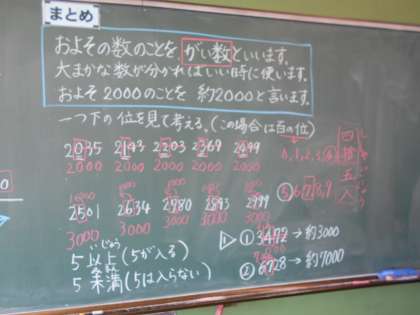 まとめ
およその数のことを、がい数といいます。
大まかな数が分かればいい時に使います。
およそ2000のことを 約2000と言います。
一つ下の位を見て考える。(この場合は百の位)
2035 2143 2203 2369 2499
2000 2000 2000 2000 2000
0,1,2,3,4
四捨五入
5,6,7,8,9
2501 2634 2780 2893 2999
3000 3000 3000 3000 3000
5以上(5が入る)
いじょう
5未満(5は入らない)
① 3472→約3000
② 6728→約7000